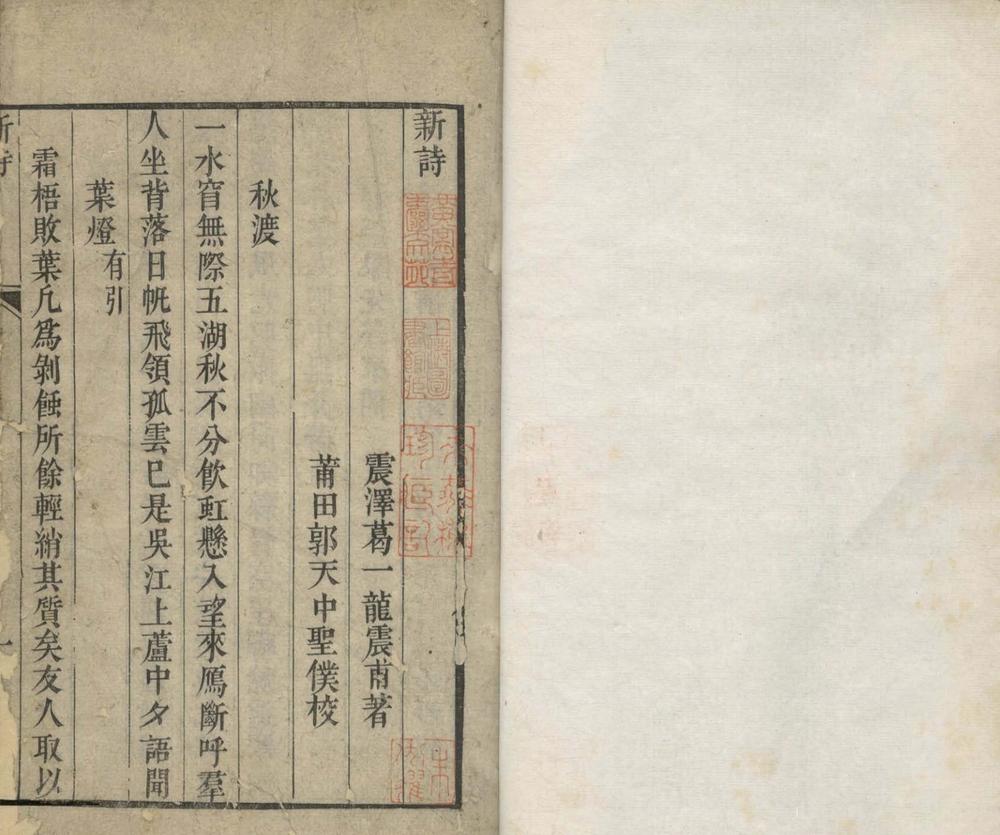 新詩
震澤葛一龍震甫著
莆田郭天中聖僕校
秋渡
一水窅無際五湖秋不分飲虹懸入望來鴈斷呼羣
人坐背落日帆飛領孤雲已是吳江上蘆中夕語聞
葉燈有引
霜梧敗葉凢爲剝蝕所餘輕綃其質矣友人取以
新詩
一
上海圖書館藏